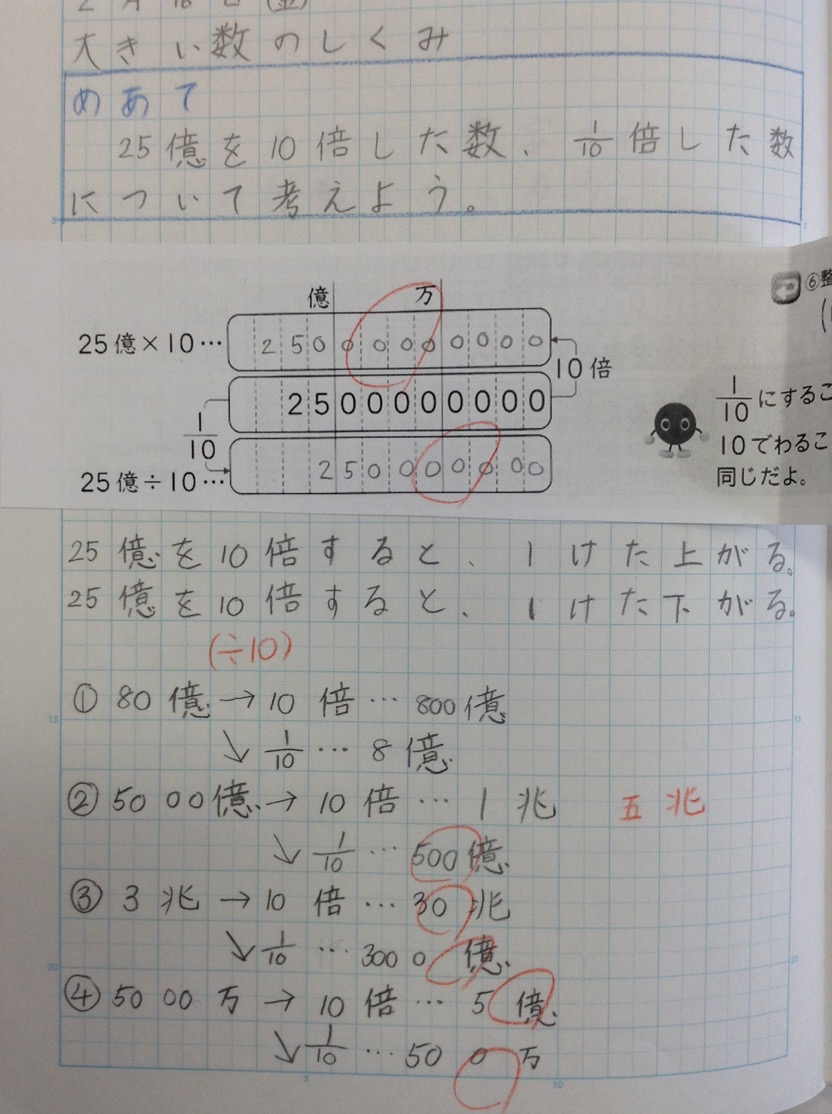 2月16日(金)
大きい数のしくみ
めあて
25億を10倍した数、1/10倍した数
について考えよう。
億 万
25億×10… 250 0 0 0 0 0 0 0 0
10倍
2500000000
1/10
25億÷10… 250000000
⑥整
1/10にするこ
10でわるこ
同じだよ。
25億を10倍すると、1けた上がる。
25億を10倍すると、1けた下がる。
(÷10)
① 80億→10倍…800億
↘1/10…8億
② 5000億→10倍…1兆 五兆
↘1/10…500億
③ 3兆→10倍…30兆
↘1/10…3000億
④ 5000万→10倍…5億
↘1/10…500万